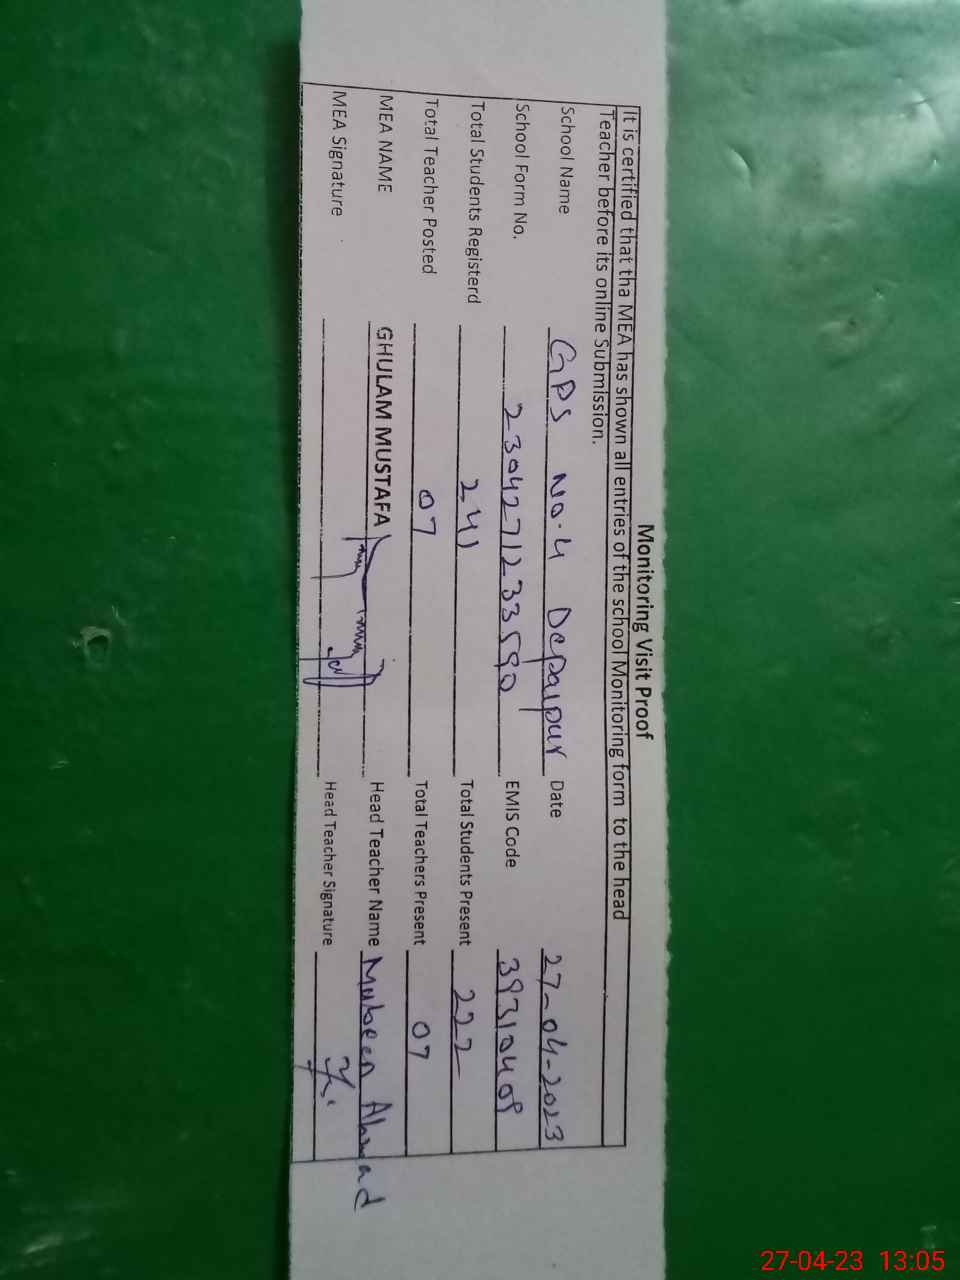 Monitoring Visit Proof
It is certified that tha MEA has shown all entries of the school Monitoring form to the head
Teacher before its online Submission.
School Name GPS No.4 Depalpur Date 27-04-2023
School Form No. 2304271233590 EMIS Code 39310408
Total Students Registerd 241 Total Students Present 222
Total Teacher Posted 07 Total Teachers Present 07
MEA NAME GHULAM MUSTAFA Head Teacher Name Mubeen Ahmad
MEA Signature Head Teacher Signature
27-04-23 13:05